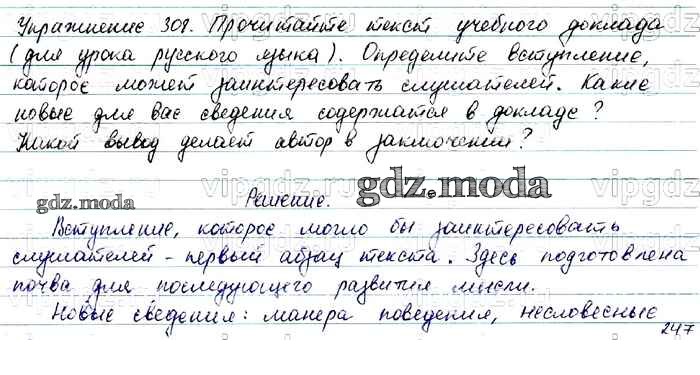 Упражнение 308. Прочитайте текст учебного доклада
(для урока русского языка). Определите вступление,
которое может заинтересовать слушателей. Какие
новые для вас сведения содержатся в докладе?
Какой вывод делает автор в заключении?
gdz.moda
Решение.
gdz.moda
Вступление, которое могло бы заинтересовать
слушателей - первый абзац текста. Здесь подготовлена
почва для последующего развития мысли.
Новые сведения: манера поведения, несловесные
247